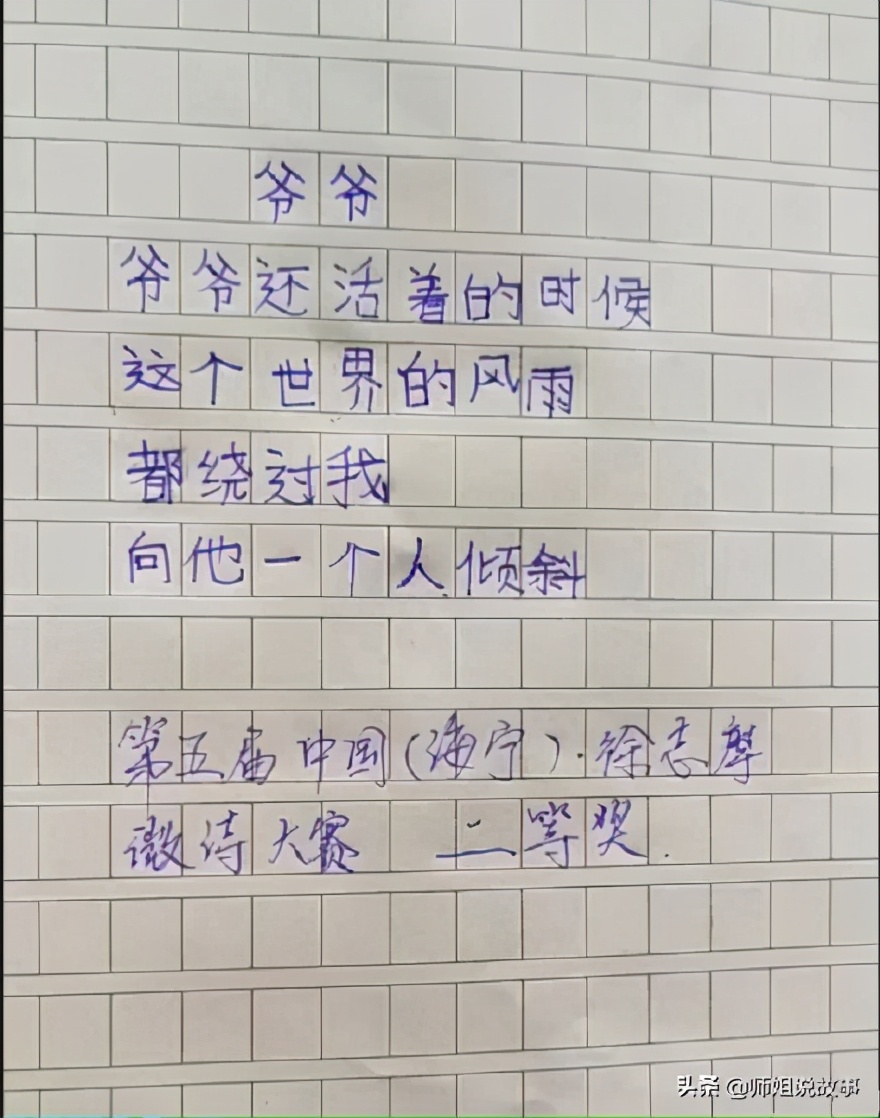 爷爷
爷爷还活着的时候
这个世界的风雨
都绕过我
向他一个人倾斜
第五届中国(海宁)·徐志摩
微诗大赛 二等奖.
头条 @师姐说故事